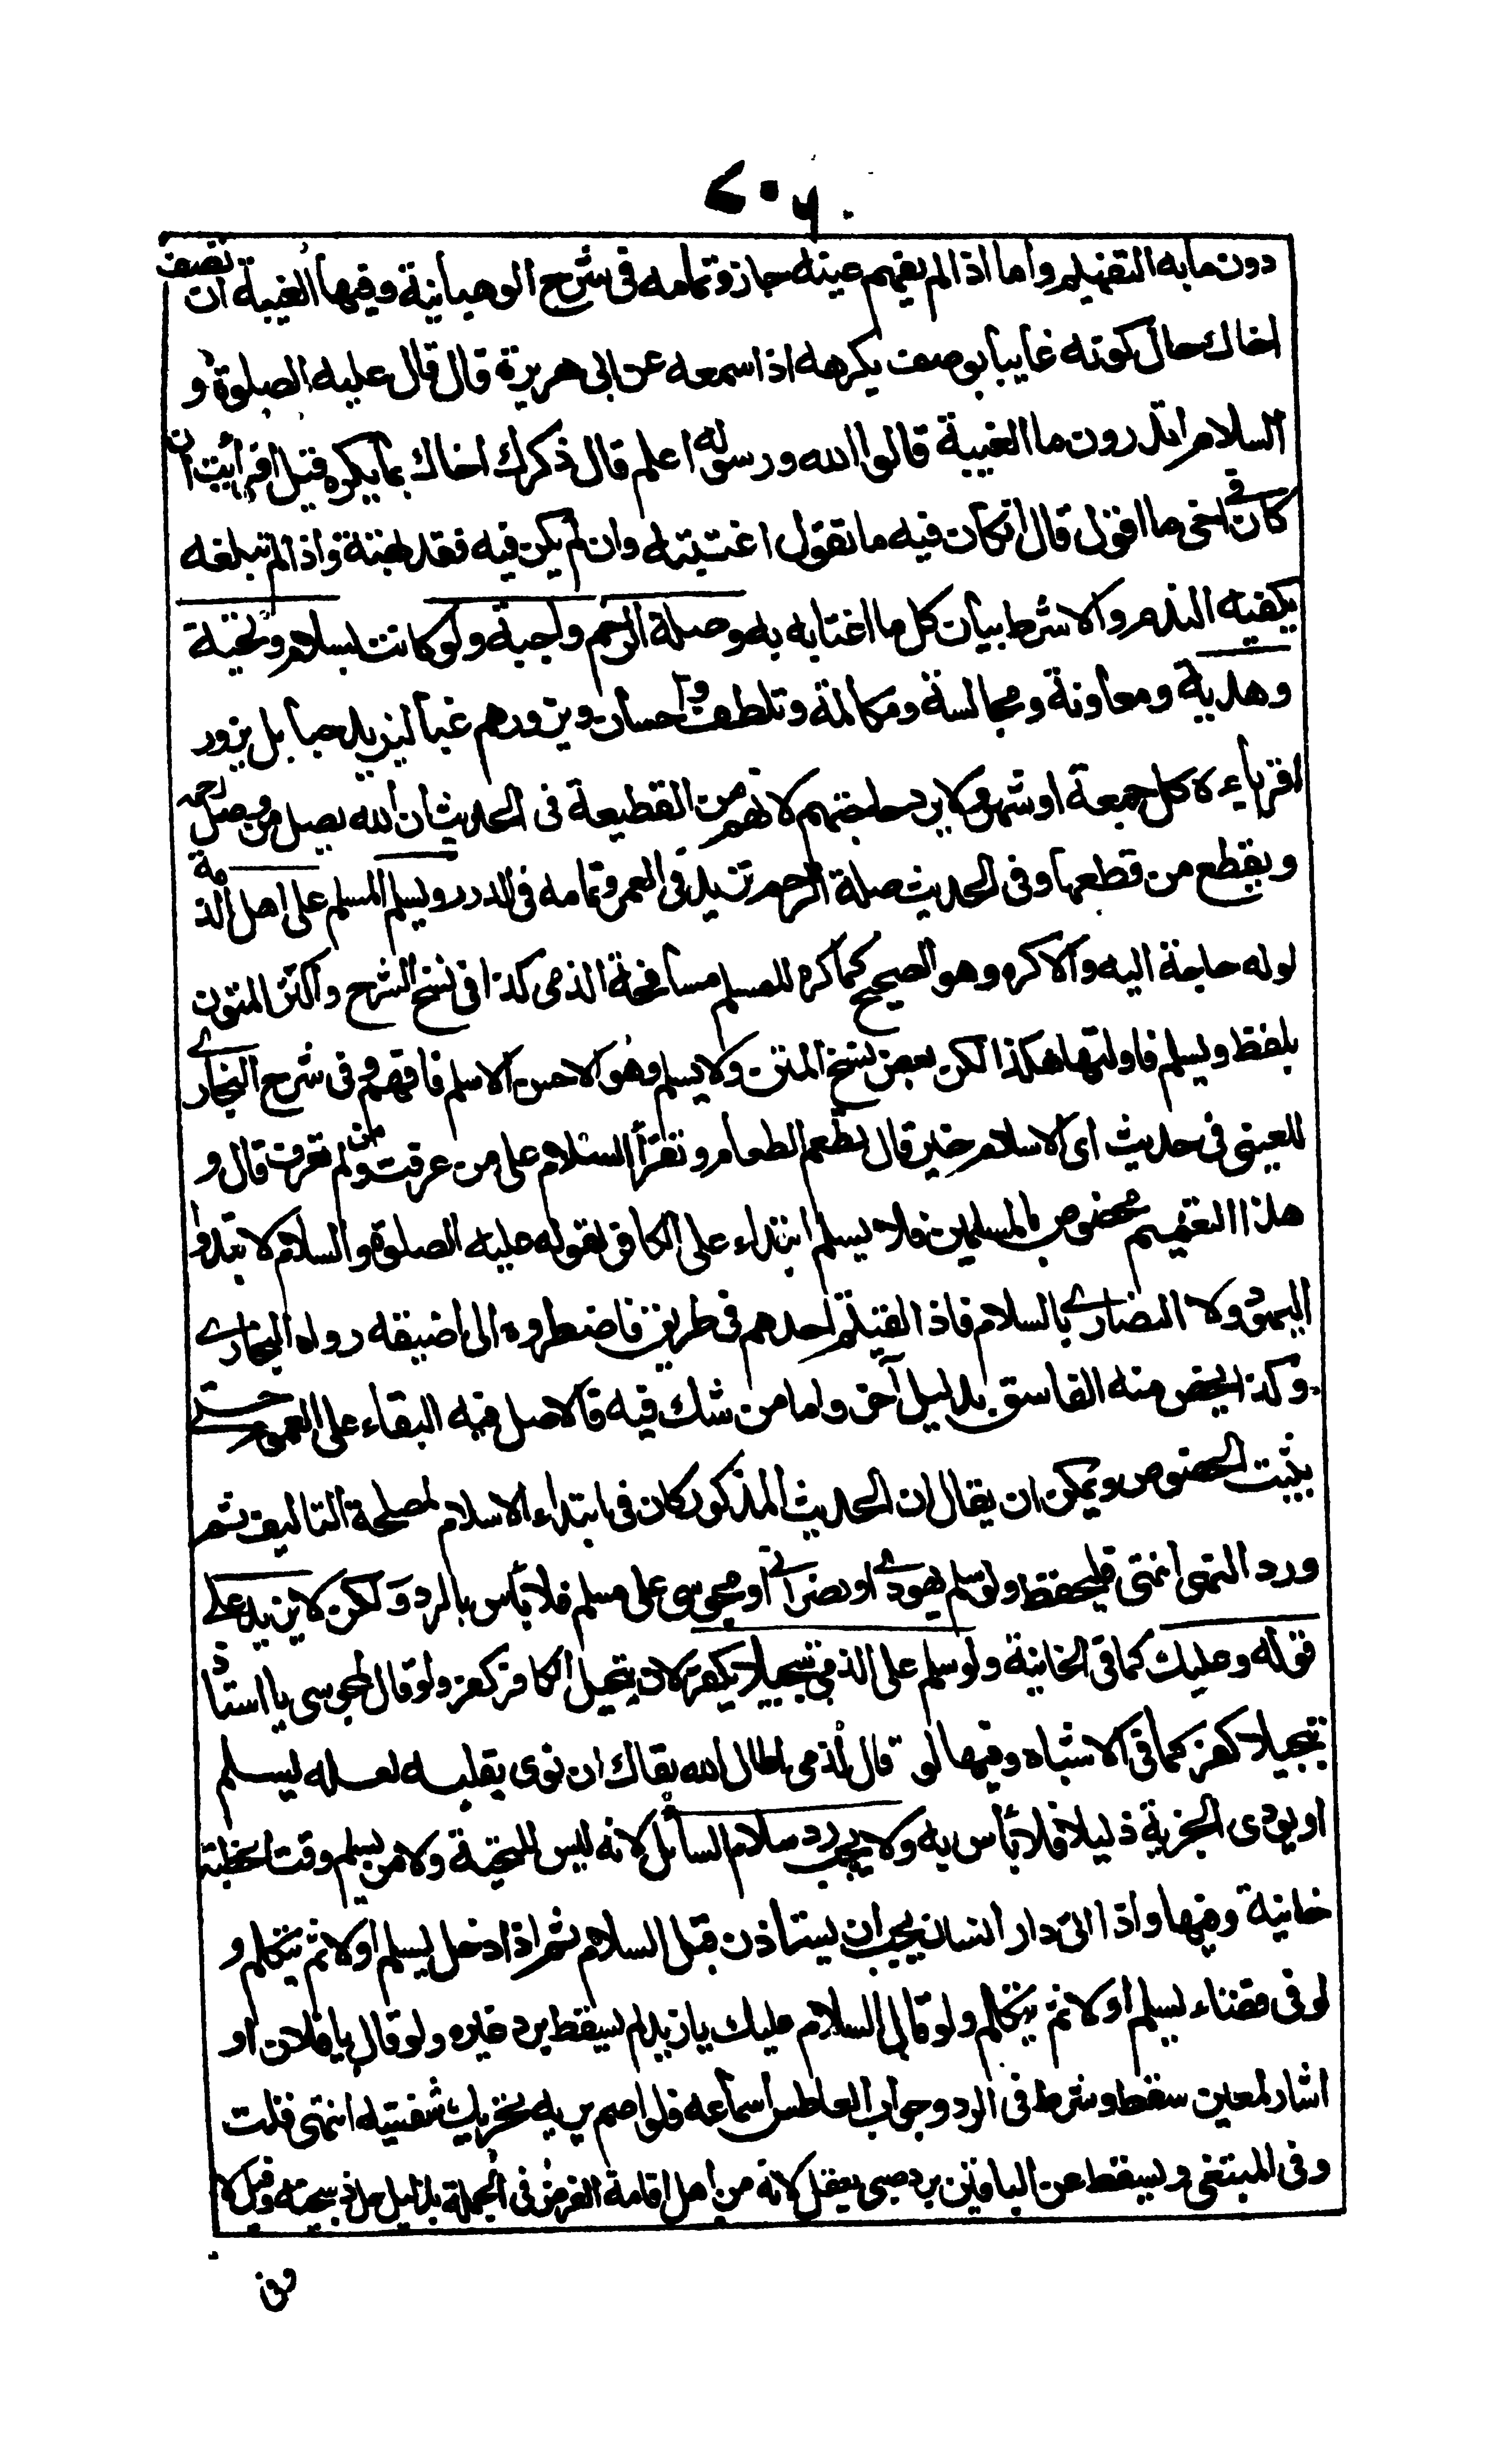 ٢٠٦
دون ما به التفهيم واما اذا لم يفهم عينه جاز وتمامه فى شرح الوهبانية وفيها الغيبة ان تصف
اخاك حال كونه غايبا بوصف يكرهه اذا سمعه عن ابى هريرة قال قال عليه الصلوة و
السلام اتدرون ما الغيبة قالوا الله ورسوله اعلم قال ذكرك اخاك بما يكره قيل افرأيت ان
كان فى اخى ما اقول قال ان كان فيه ما تقول اغتبته وان لم يكن فيه فقد بهته واذا لم تبلغه
يكفيه الندم والا شرط بيان كل ما اغتابه به وصلة الرحم واجبة ولو كانت بسلام وتحية
وهدية ومعاونة ومجالسة ومكالمة وتلطف واحسان ويزورهم غبا ليزيد حبا بل يزور
اقرباءه كل جمعة او شهر ولا يرد حاجتهم لانه من القطيعة فى الحديث ان الله يصل من وصل رحمه
ويقطع من قطعها وفى الحديث صلة الرحم تزيد فى العمر وتمامه فى الدرر ويسلم المسلم على اهل الذمة
لو له حاجة اليه والا كره وهو الصحيح كما كره للمسلم مسافحة الذمى كذا فى نسخ الشرح واكثر المتون
بلفظ ويسلم فاولتها هكذا لكن بعض نسخ المتن ولا يسلم وهو الاحسن الاسلم فافهم وفى شرح البخارى
للعينى فى حديث اى الاسلام خير قال تطعم الطعام وتقرأ السلام على من عرفت ومن لم تعرف قال و
هذا التعميم مخصوص بالمسلمين فلا يسلم ابتداء على الكافر لقوله عليه الصلوة والسلام لا تبتدوا
اليهود ولا النصارى بالسلام فاذا لقيتم احدهم فى طريق فاضطروه الى اضيقه رواه البخارى
وكذا يخص منه الفاسق بدليل آخر واما من شك فيه فالاصل فيه البقاء على العموم حتى
يثبت الخصوص ويمكن ان يقال ان الحديث المذكور كان فى ابتداء الاسلام لمصلحة التاليف ثم
ورد النهى انتهى فليحفظ ولو سلم يهودى او نصرانى او مجوسى على مسلم فلا بأس بالرد ولكن لا يزيد على
قوله وعليك كما فى الخانية ولو سلم على الذمى تبجيلا يكفر لان تبجيل الكافر كفر ولو قال لمجوسى يا استاذ
تبجيلا كفر كما فى الاشباه وفيها لو قال لذمى اطال الله بقاك ان نوى بقلبه لعله يسلم
او يؤدى الجزية ذليلا فلا بأس به ولا يجب رد سلام السائل لانه ليس للتحية ولا من يسلم وقت الخطبة
خانية وفيها واذا اتى دار انسان يجب ان يستأذن قبل السلام ثم اذا دخل يسلم اولا ثم يتكلم و
لو فى فضاء يسلم اولا ثم يتكلم ولو قال السلام عليك يا زيد لم يسقط برد غيره ولو قال يا فلان او
اشار لمعين سقط وشرط فى الرد وجواب العاطس اسماعه فلو اصم يريه تحريك شفتيه انتهى قلت
وفى المبتغى ويسقط عن الباقين برد صبى يعقل لانه من اهل اقامة الفرض فى الجملة بدليل حل ذبيحته وقيل لا